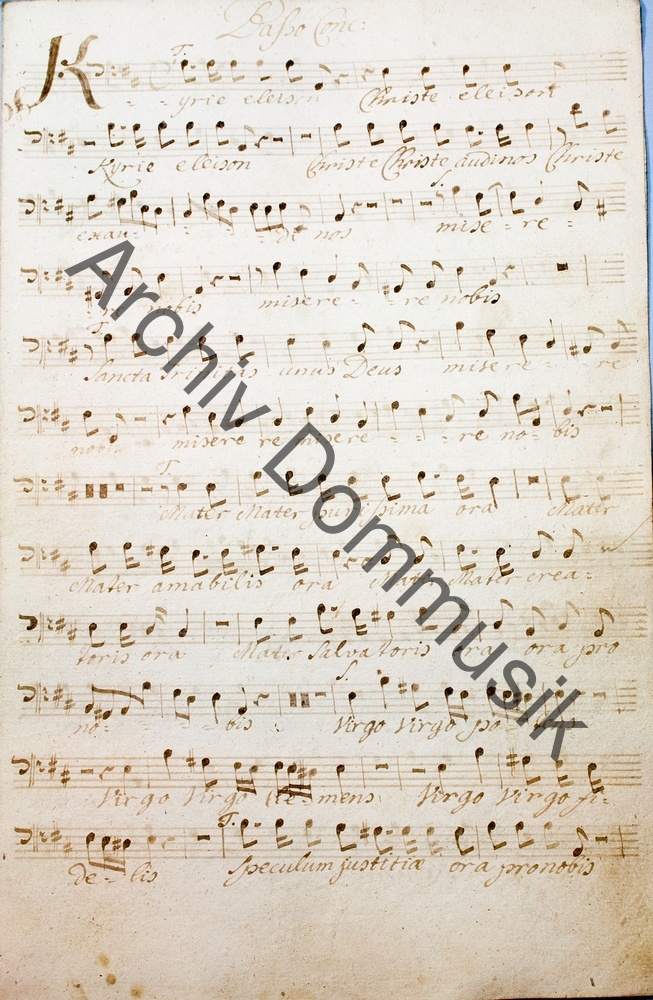 Basso Conc:
T.
Kyrie eleison Christe eleison
Kyrie eleison Christe Christe audinos Christe
S.
exau - - - di nos mise - re -
nobis misere - - re nobis
T.
Sancta Trinitas unus Deus misere - - re
nobis misere re misere - - - re no - bis
T.
Mater Mater purissima ora Mater
Mater amabilis ora Mater Mater crea -
toris ora Mater Salvatoris ora ora pro
S.
no - - - bis Virgo Virgo po - tens
Virgo Virgo cle - mens Virgo Virgo fi -
T.
de - lis Speculum justitiæ ora pronobis
Archiv Dommusik